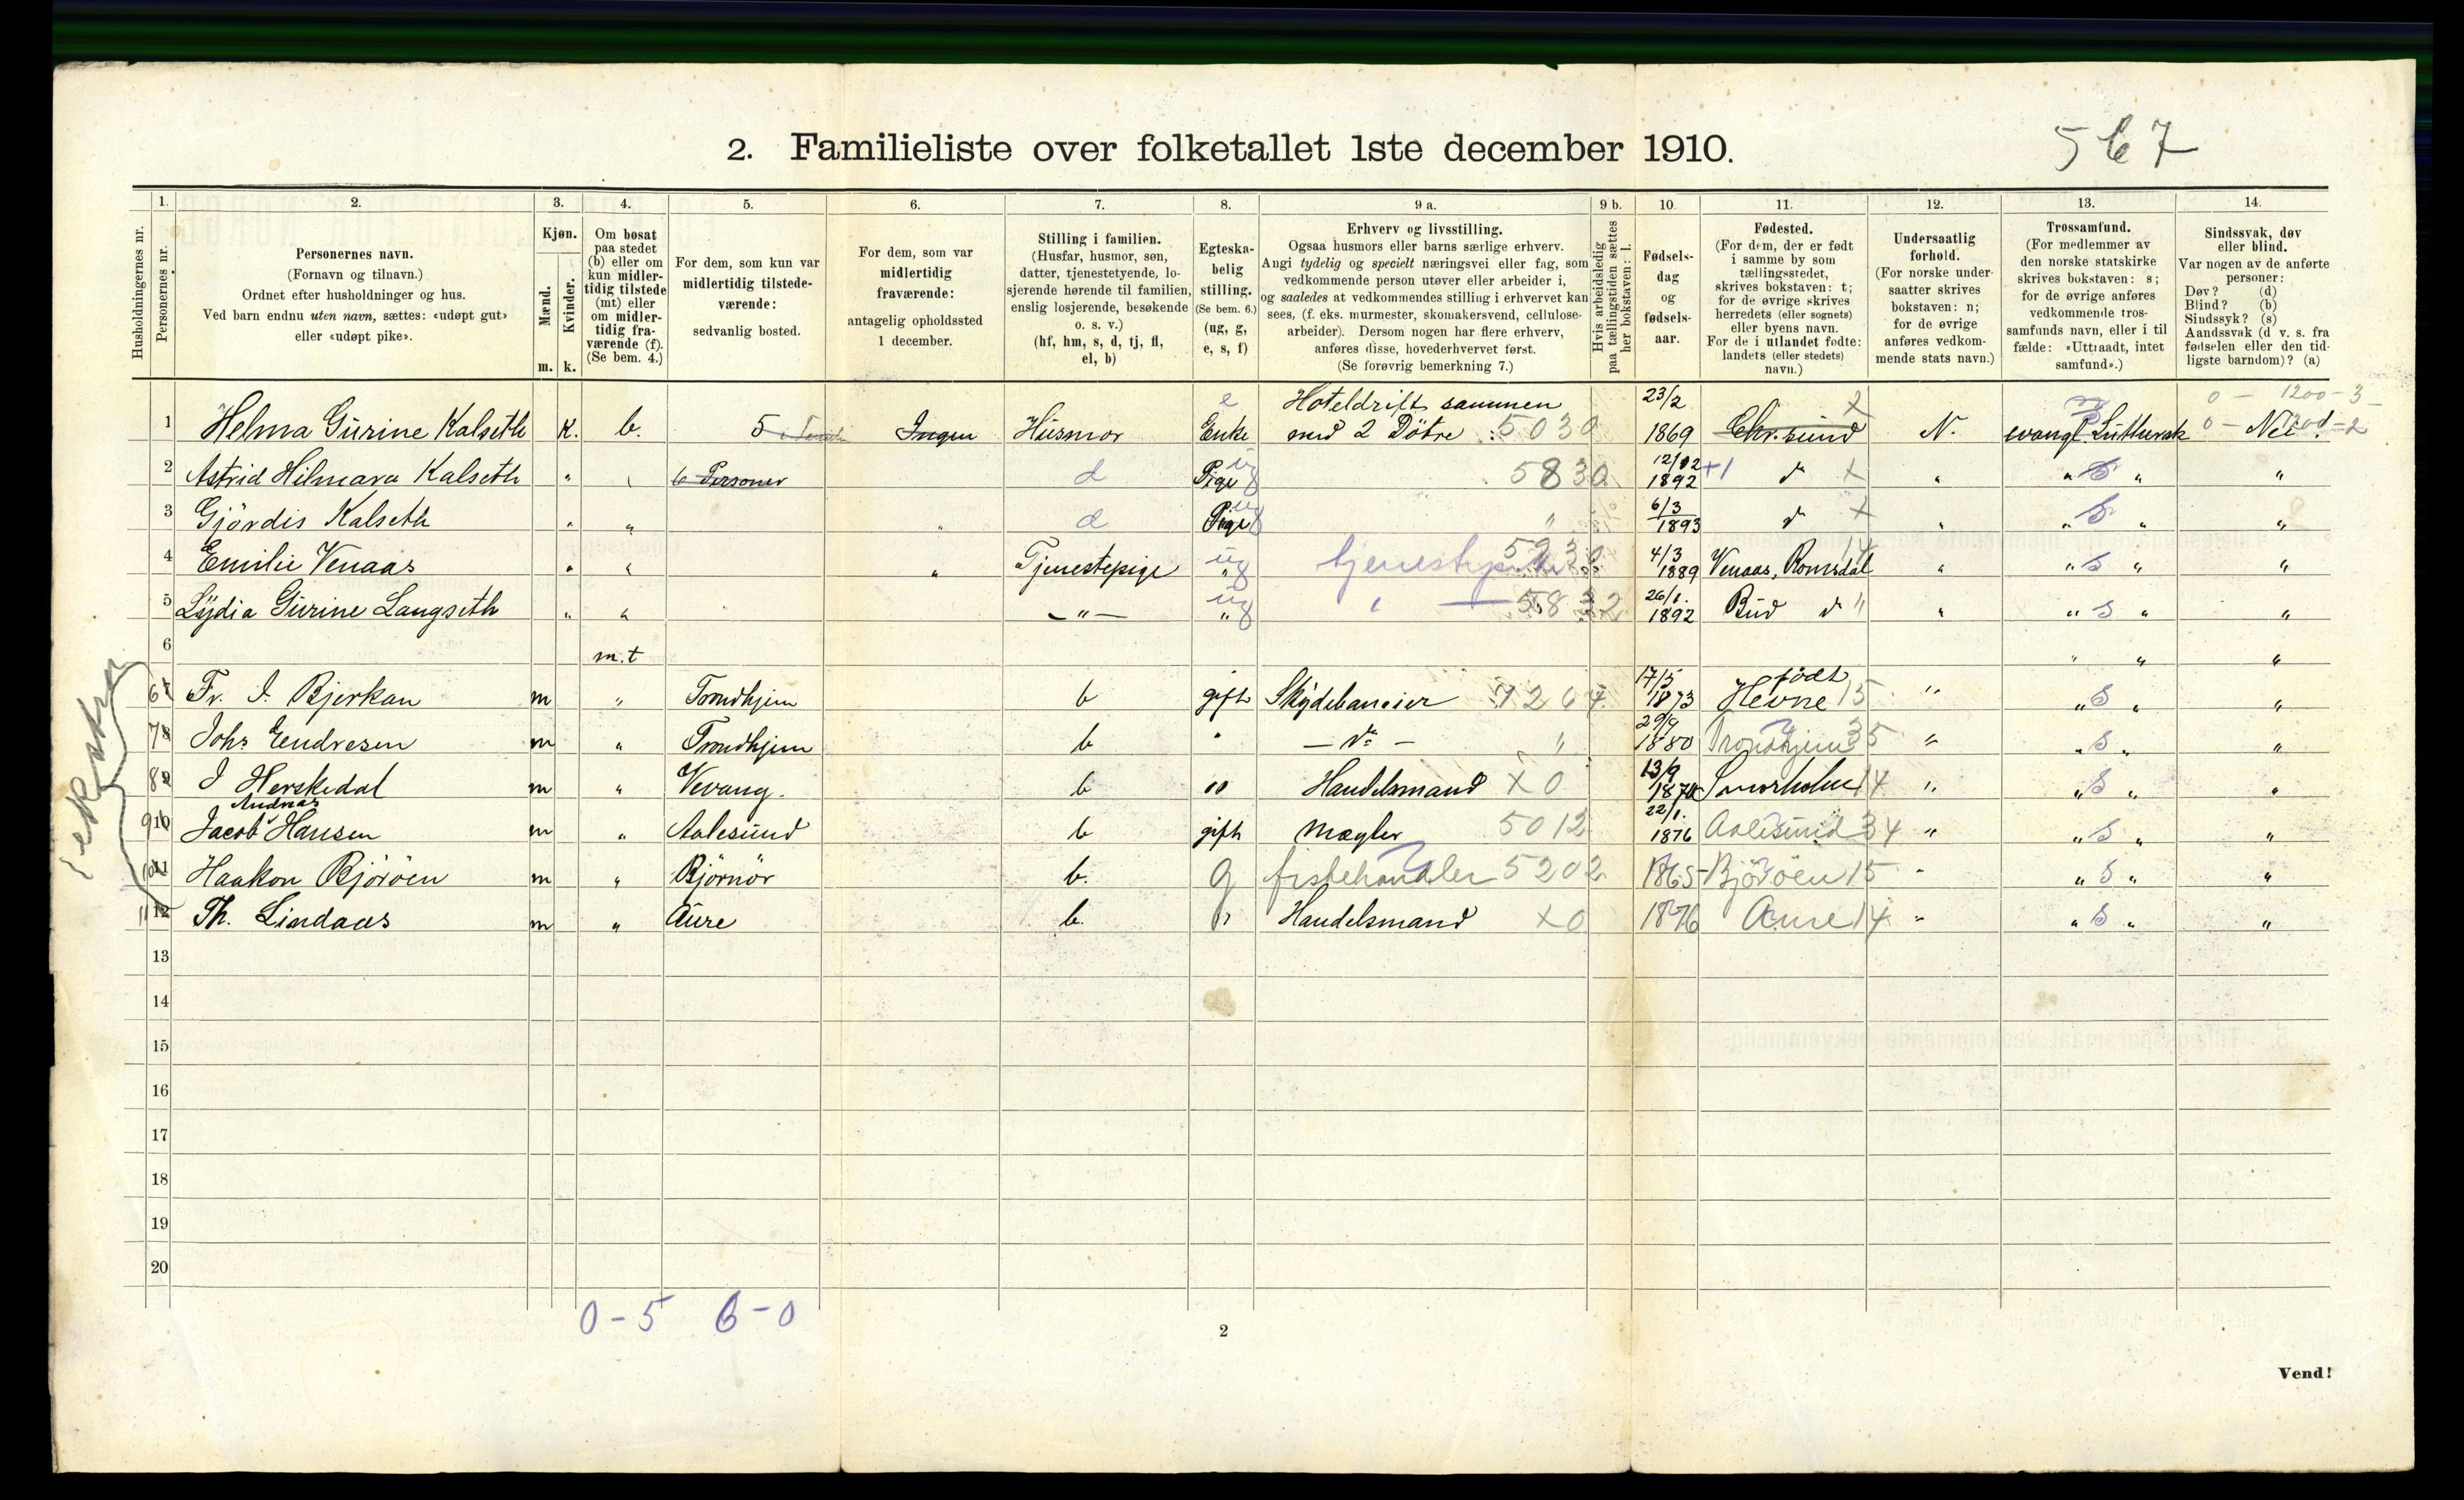 567
2. Familieliste over folketallet 1ste december 1910.
1. 2. 3. 4. 5. 6. 7. 8. 9 a. 9 b. 10. 11. 12. 13. 14.
Husholdningernes nr.
Personernes nr.
Personernes navn.
(Fornavn og tilnavn.)
Ordnet efter husholdninger og hus.
Ved barn endnu uten navn, sættes: «udøpt gut»
eller «udøpt pike».
Kjøn.
Mænd.
Kvinder.
m. k.
Om bosat
paa stedet
(b) eller om
kun midler-
tidig tilstede
(mt) eller
om midler-
tidig fra-
værende (f).
(Se bem. 4.)
For dem, som kun var
midlertidig tilstede-
værende:
sedvanlig bosted.
For dem, som var
midlertidig
fraværende:
antagelig opholdssted
1 december.
Stilling i familien.
(Husfar, husmor, søn,
datter, tjenestetyende, lo-
sjerende hørende til familien,
enslig losjerende, besøkende
o. s. v.)
(hf, hm, s, d, tj, fl,
el, b)
Egteska-
belig
stilling.
(Se bem. 6.)
(ug, g,
e, s, f)
Erhverv og livsstilling.
Ogsaa husmors eller barns særlige erhverv.
Angi tydelig og specielt næringsvei eller fag, som
vedkommende person utøver eller arbeider i,
og saaledes at vedkommendes stilling i erhvervet kan
sees, (f. eks. murmester, skomakersvend, cellulose-
arbeider). Dersom nogen har flere erhverv,
anføres disse, hovederhvervet først.
(Se forøvrig bemerkning 7.)
Hvis arbeidsledig
paa tællingstiden sættes
her bokstaven: l.
Fødsels-
dag
og
fødsels-
aar.
Fødested.
(For dem, der er født
i samme by som
tællingsstedet,
skrives bokstaven: t;
for de øvrige skrives
herredets (eller sognets)
eller byens navn.
For de i utlandet fødte:
landets (eller stedets)
navn.)
Undersaatlig
forhold.
(For norske under-
saatter skrives
bokstaven: n;
for de øvrige
anføres vedkom-
mende stats navn.)
Trossamfund.
(For medlemmer av
den norske statskirke
skrives bokstaven: s;
for de øvrige anføres
vedkommende tros-
samfunds navn, eller i til
fælde: «Uttraadt, intet
samfund».)
Sindssvak, døv
eller blind.
Var nogen av de anførte
personer:
Døv? (d)
Blind? (b)
Sindssyk? (s)
Aandssvak (d v. s. fra
fødselen eller den tid-
ligste barndom)? (a)
0 - 1200-3
e Hoteldrift sammen 23/2
1 Helma Gurine Kalseth K. b. 5 Ingen Husmor Enke med 2 Døtre 5030 1869 Chr.sund N. evangl. Luthersk Nei
2 Astrid Hilmara Kalseth " " 6 Personer d Pige ug 5830 12/02 1892 +1 do x " " S " "
3 Gjördis Kalseth " " " d Pige ug " 6/3 1893 do x " " S " "
4 Emilie Venaas " " " Tjenestepige ug 4/3 1889 Venaas, Romsdal " " S " "
5 Lydia Gurine Langseth " " — " — ug 26/1. 1892 Bud do " " " S " "
6 m.t " " "
67 Fr. I. Bjerkan m " Trondhjem b gift Skydebaneier 17/5 1873 født Hevne 15 " " S " "
78 Johs Endresen m " Trondhjem b " — do — " 29/9 1880 Trondhjem 35 " " S " "
8 I Herskedal m " Vevang. b " Handelsmand X0 13/9 14 " " S " "
Andreas
910 Jacob Hansen m " Aalesund b gift Mægler 5012 22/1. 1876 Aalesund 34 " " S " "
Haakon Björöen m " Björnör b. g fiskehandler 5202 1865 Björöen 15 " " S " "
1112 Th. Lindaas m " Aure b. " Handelsmand X0 1876 Aure 14 " " S " "
13
14
15
16
17
18
19
20
0-5 6-0
2
Vend!